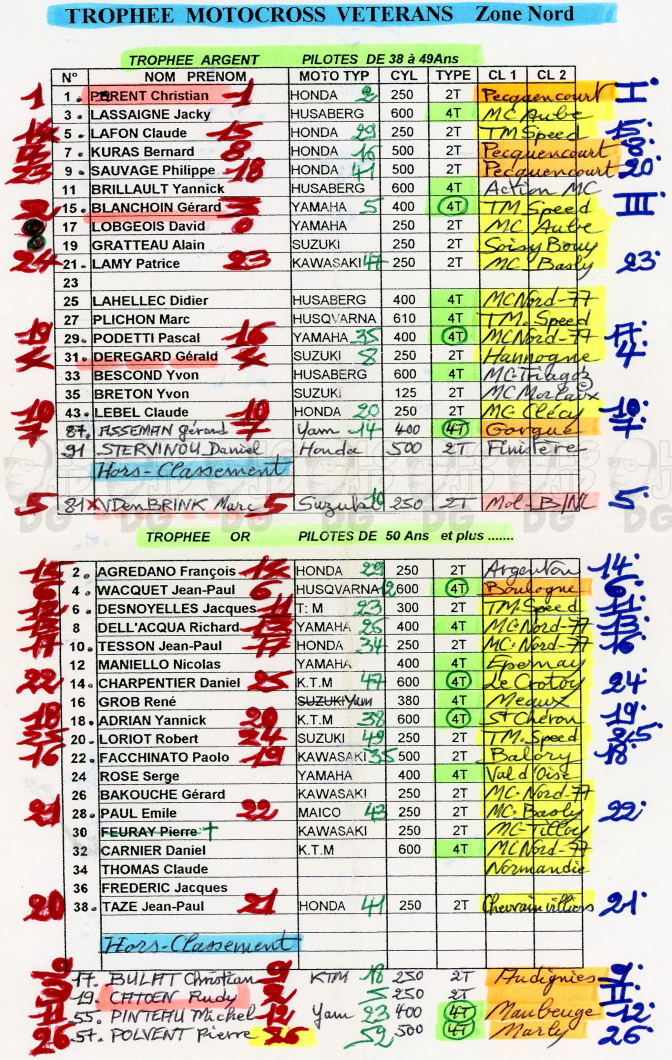 TROPHEE MOTOCROSS VETERANS Zone Nord
TROPHEE ARGENT PILOTES DE 38 à 49Ans
N° NOM PRENOM MOTO TYP CYL TYPE CL 1 CL 2
1 1 PERENT Christian 1 HONDA 2 250 2T Pecquencourt I
3 LASSAIGNE Jacky HUSABERG 600 4T MC Aube
5 LAFON Claude 15 HONDA 29 250 2T TM Speed 15
7 KURAS Bernard 8 HONDA 16 500 2T Pecquencourt 8
23 9 SAUVAGE Philippe 18 HONDA 41 500 2T Pecquencourt 20
11 BRILLAULT Yannick HUSABERG 600 4T Action MC
15 BLANCHOIN Gérard YAMAHA 5 400 4T TM Speed III
17 LOBGEOIS David YAMAHA 250 2T MC Aube
19 GRATTEAU Alain SUZUKI 250 2T Soisy Bouy
24 21 LAMY Patrice 23 KAWASAKI 47 250 2T MC Basly 23
23
25 LAHELLEC Didier HUSABERG 400 4T MC Nord-77
27 PLICHON Marc HUSQVARNA 610 4T TM Speed
19 29 PODETTI Pascal 16 YAMAHA 35 400 4T MC Nord-77 17
31 DEREGARD Gérald SUZUKI 8 250 2T Hannogne 4
33 BESCOND Yvon HUSABERG 600 4T
35 BRETON Yvon SUZUKI 125 2T MC Morlaix
43 LEBEL Claude 10 HONDA 20 250 2T MC Clécy 10
7 87. ASSEMAN Gérard 7 Yam 14 400 4T Gorgue 7
91 STERVINOU Daniel Honda 500 2T Finistère
Hors-Classement
5 81 X VDenBRINK Marc 5 Suzuki 10 250 2T Mol-B/NL 5
TROPHEE OR PILOTES DE 50 Ans et plus .......
2 AGREDANO François HONDA 250 2T Argenton 14
6 4 WACQUET Jean-Paul 6 HUSQVARNA 2 600 4T Boulogne 6
6 DESNOYELLES Jacques 11 T. M 23 300 2T TM Speed 11
8 DELL'ACQUA Richard 13 YAMAHA 26 400 4T MC Nord-77 13
10 TESSON Jean-Paul 17 HONDA 34 250 2T MC Nord-77 16
12 MANIELLO Nicolas YAMAHA 400 4T Epernay
22 14 CHARPENTIER Daniel 25 K.T.M 47 600 4T Le Crotoy 24
16 GROB René SUZUKI Yam 380 4T Meaux
18 18 ADRIAN Yannick 20 K.T.M 38 600 4T St Chéron 19
20 LORIOT Robert 24 SUZUKI 49 250 2T TM Speed 25
16 22 FACCHINATO Paolo 19 KAWASAKI 35 500 2T Balory 18
24 ROSE Serge YAMAHA 400 4T Val d'Oise
26 BAKOUCHE Gérard KAWASAKI 250 2T MC Nord-77
21 28 PAUL Emile 22 MAICO 43 250 2T MC Basly 22
30 FEURAY Pierre † KAWASAKI 250 2T MC Tilloy
32 CARNIER Daniel K.T.M 600 4T MC Nord-77
34 THOMAS Claude Normandie
36 FREDERIC Jacques
20 38 TAZE Jean-Paul 21 HONDA 41 250 2T Chevrainvilliers 21
Hors-Classement
17. BULAT Christian 9 KTM 18 250 2T Audignies 9
19. CATOEN Rudy 5 250 2T II
11 55. PINTEAU Michel 12 Yam 23 400 4T Maubeuge 12
26 57. POLVENT Pierre 26 59 500 4T Marly 26